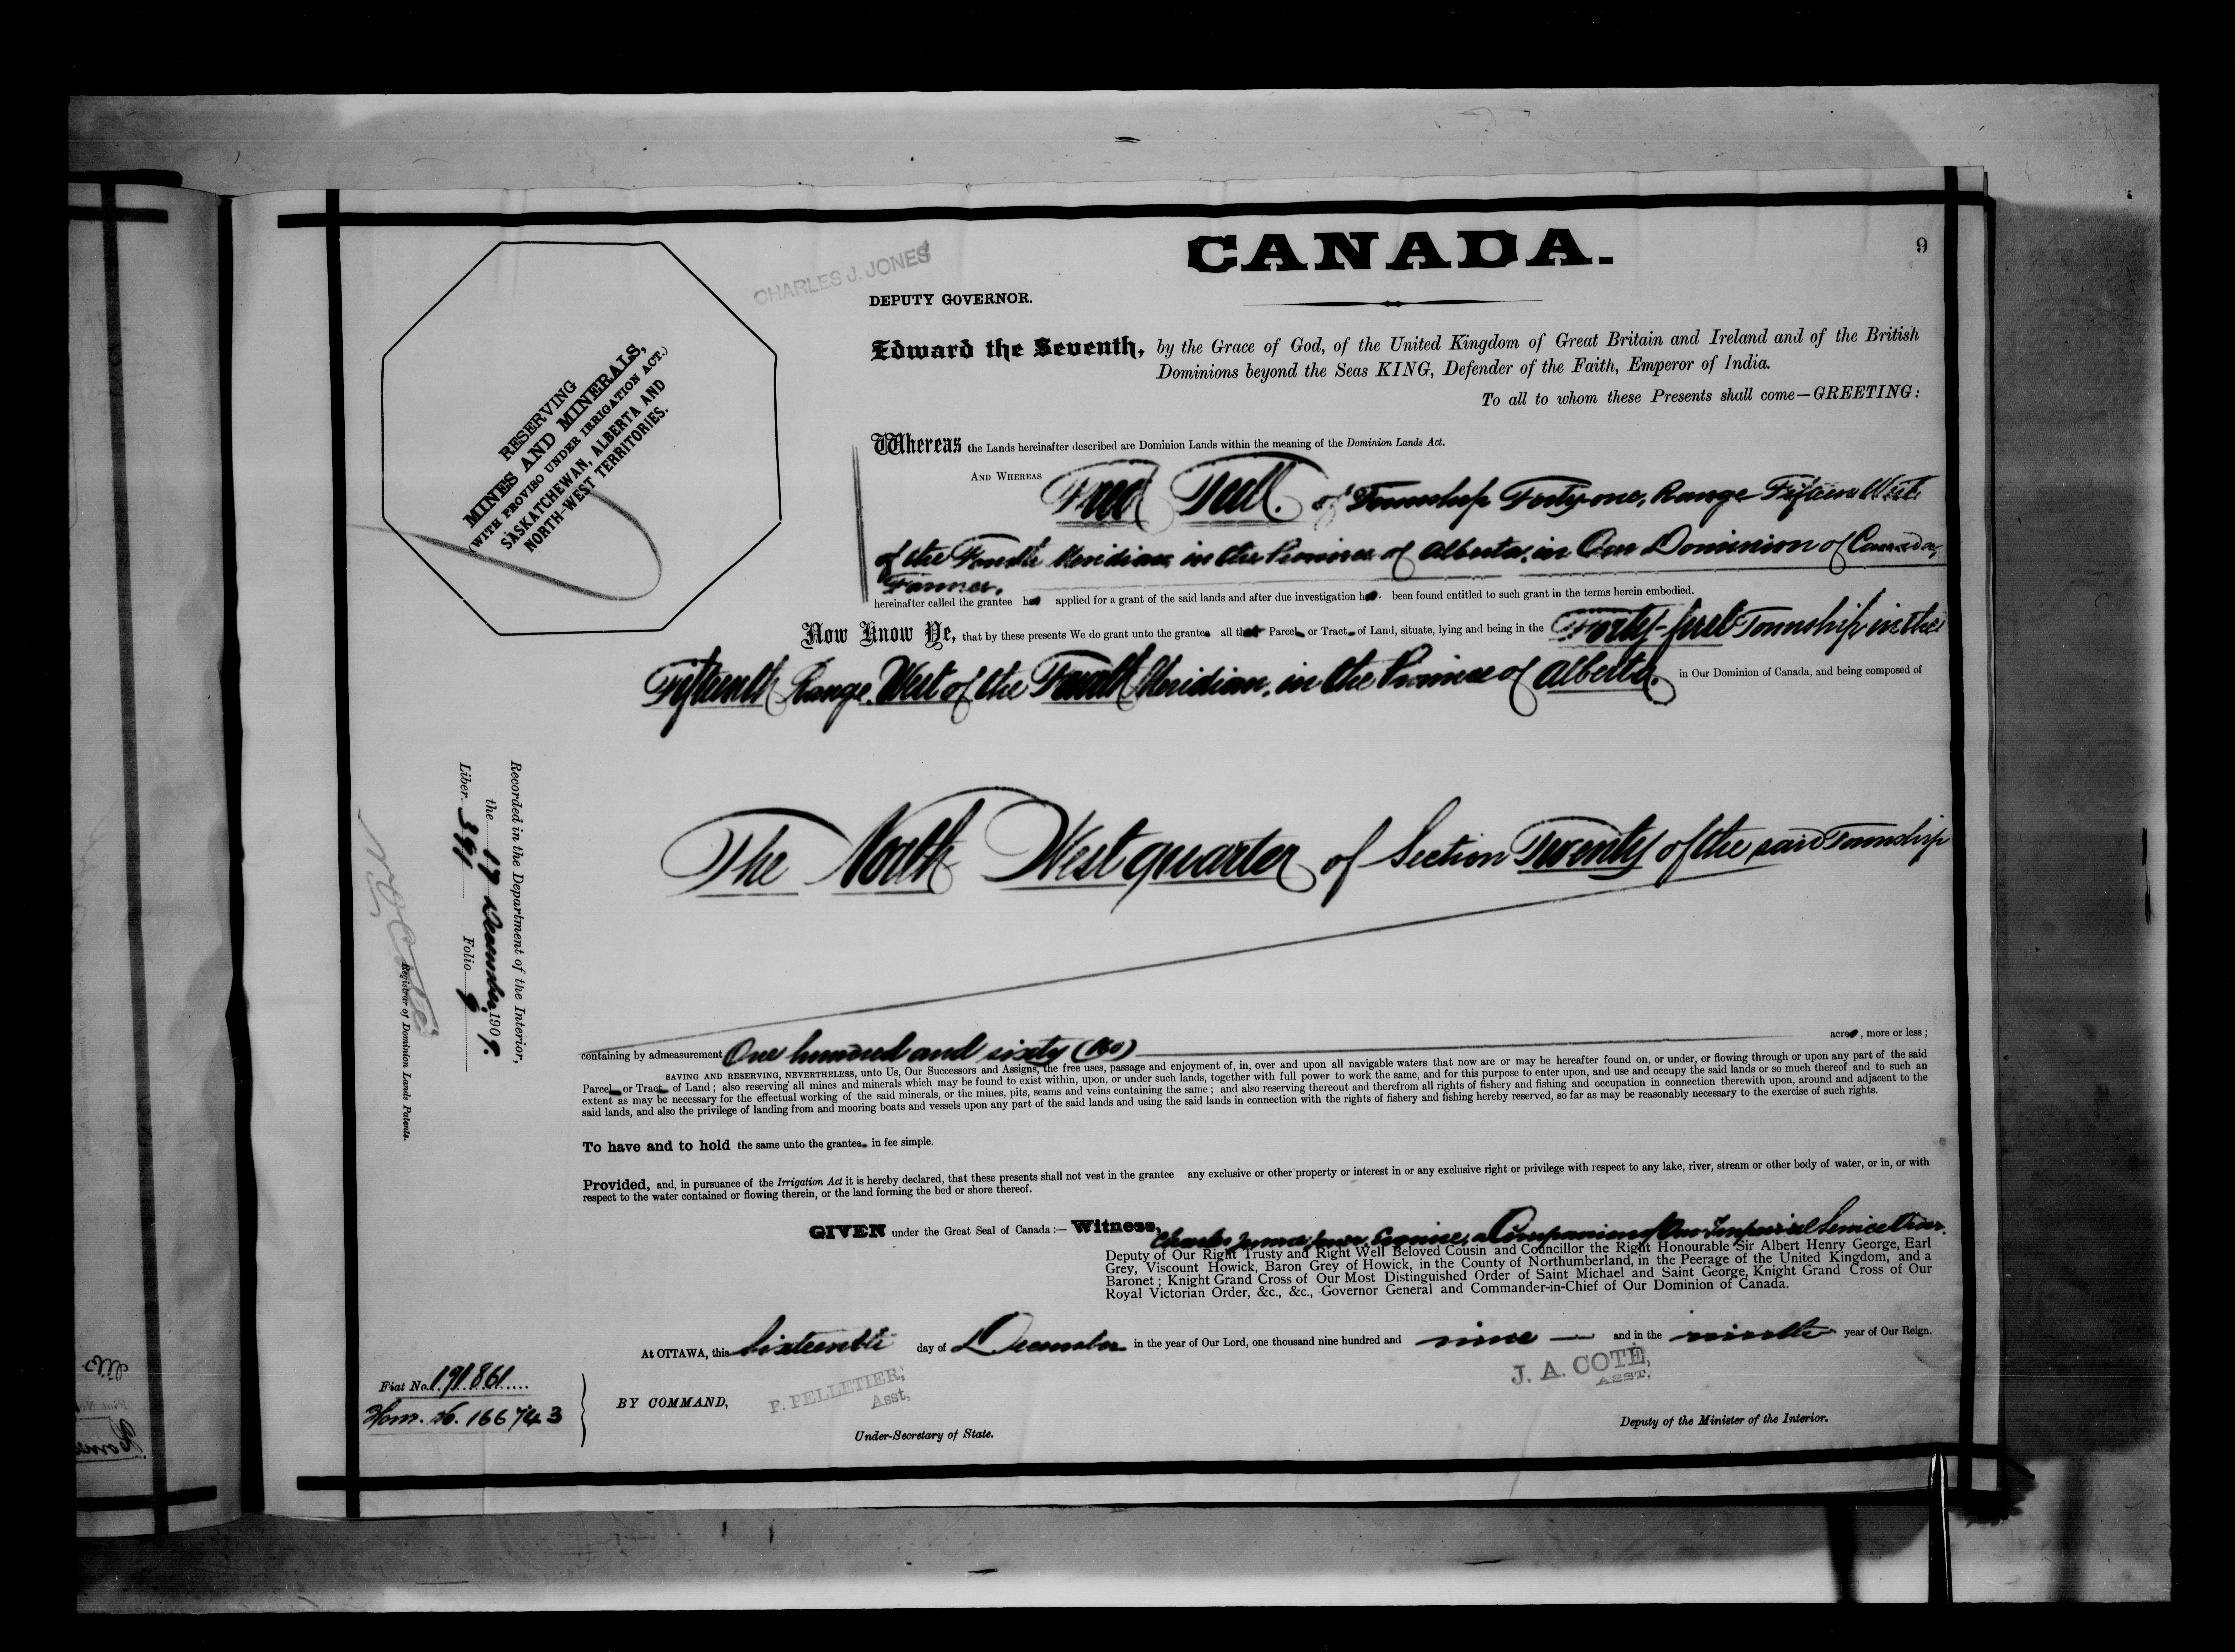 CANADA.
9
CHARLES J. JONES
DEPUTY GOVERNOR.
RESERVING
MINES AND MINERALS,
(WITH PROVISO UNDER IRRIGATION ACT.)
SASKATCHEWAN, ALBERTA AND
NORTH-WEST TERRITORIES.
Edward the Seventh, by the Grace of God, of the United Kingdom of Great Britain and Ireland and of the British
Dominions beyond the Seas KING, Defender of the Faith, Emperor of India.
To all to whom these Presents shall come—GREETING:
Whereas the Lands hereinafter described are Dominion Lands within the meaning of the Dominion Lands Act.
AND WHEREAS Fred Teall. of Township Forty-one, Range Fifteen West
of the Fourth Meridian, in the Province of Alberta, in Our Dominion of Canada,
Farmer,
hereinafter called the grantee has applied for a grant of the said lands and after due investigation has been found entitled to such grant in the terms herein embodied.
Now Know Ye, that by these presents We do grant unto the grantee all that Parcel or Tract of Land, situate, lying and being in the Forty-first Township in the
Fifteenth Range, West of the Fourth Meridian, in the Province of Alberta, in Our Dominion of Canada, and being composed of
The North West quarter of Section Twenty of the said Township
containing by admeasurement One hundred and sixty (160) acres, more or less;
SAVING AND RESERVING, NEVERTHELESS, unto Us, Our Successors and Assigns, the free uses, passage and enjoyment of, in, over and upon all navigable waters that now are or may be hereafter found on, or under, or flowing through or upon any part of the said
Parcel or Tract of Land; also reserving all mines and minerals which may be found to exist within, upon, or under such lands, together with full power to work the same, and for this purpose to enter upon, and use and occupy the said lands or so much thereof and to such an
extent as may be necessary for the effectual working of the said minerals, or the mines, pits, seams and veins containing the same; and also reserving thereout and therefrom all rights of fishery and fishing and occupation in connection therewith upon, around and adjacent to the
said lands, and also the privilege of landing from and mooring boats and vessels upon any part of the said lands and using the said lands in connection with the rights of fishery and fishing hereby reserved, so far as may be reasonably necessary to the exercise of such rights.
To have and to hold the same unto the grantee in fee simple.
Provided, and, in pursuance of the Irrigation Act it is hereby declared, that these presents shall not vest in the grantee any exclusive or other property or interest in or any exclusive right or privilege with respect to any lake, river, stream or other body of water, or in, or with
respect to the water contained or flowing therein, or the land forming the bed or shore thereof.
GIVEN under the Great Seal of Canada:— Witness, Charles James Jones, Esquire, a Companion of Our Imperial Service Order.
Deputy of Our Right Trusty and Right Well Beloved Cousin and Councillor the Right Honourable Sir Albert Henry George, Earl
Grey, Viscount Howick, Baron Grey of Howick, in the County of Northumberland, in the Peerage of the United Kingdom, and a
Baronet; Knight Grand Cross of Our Most Distinguished Order of Saint Michael and Saint George, Knight Grand Cross of Our
Royal Victorian Order, &c., &c., Governor General and Commander-in-Chief of Our Dominion of Canada.
At OTTAWA, this Sixteenth day of December in the year of Our Lord, one thousand nine hundred and nine — and in the ninth year of Our Reign.
BY COMMAND,
P. PELLETIER,
Asst,
Under-Secretary of State.
J. A. COTÉ,
ASST,
Deputy of the Minister of the Interior.
Fiat No. 191861
Hom. No. 166743
Recorded in the Department of the Interior,
the 17 December, 1909.
Liber 391 Folio 9
Registrar of Dominion Lands Patents.